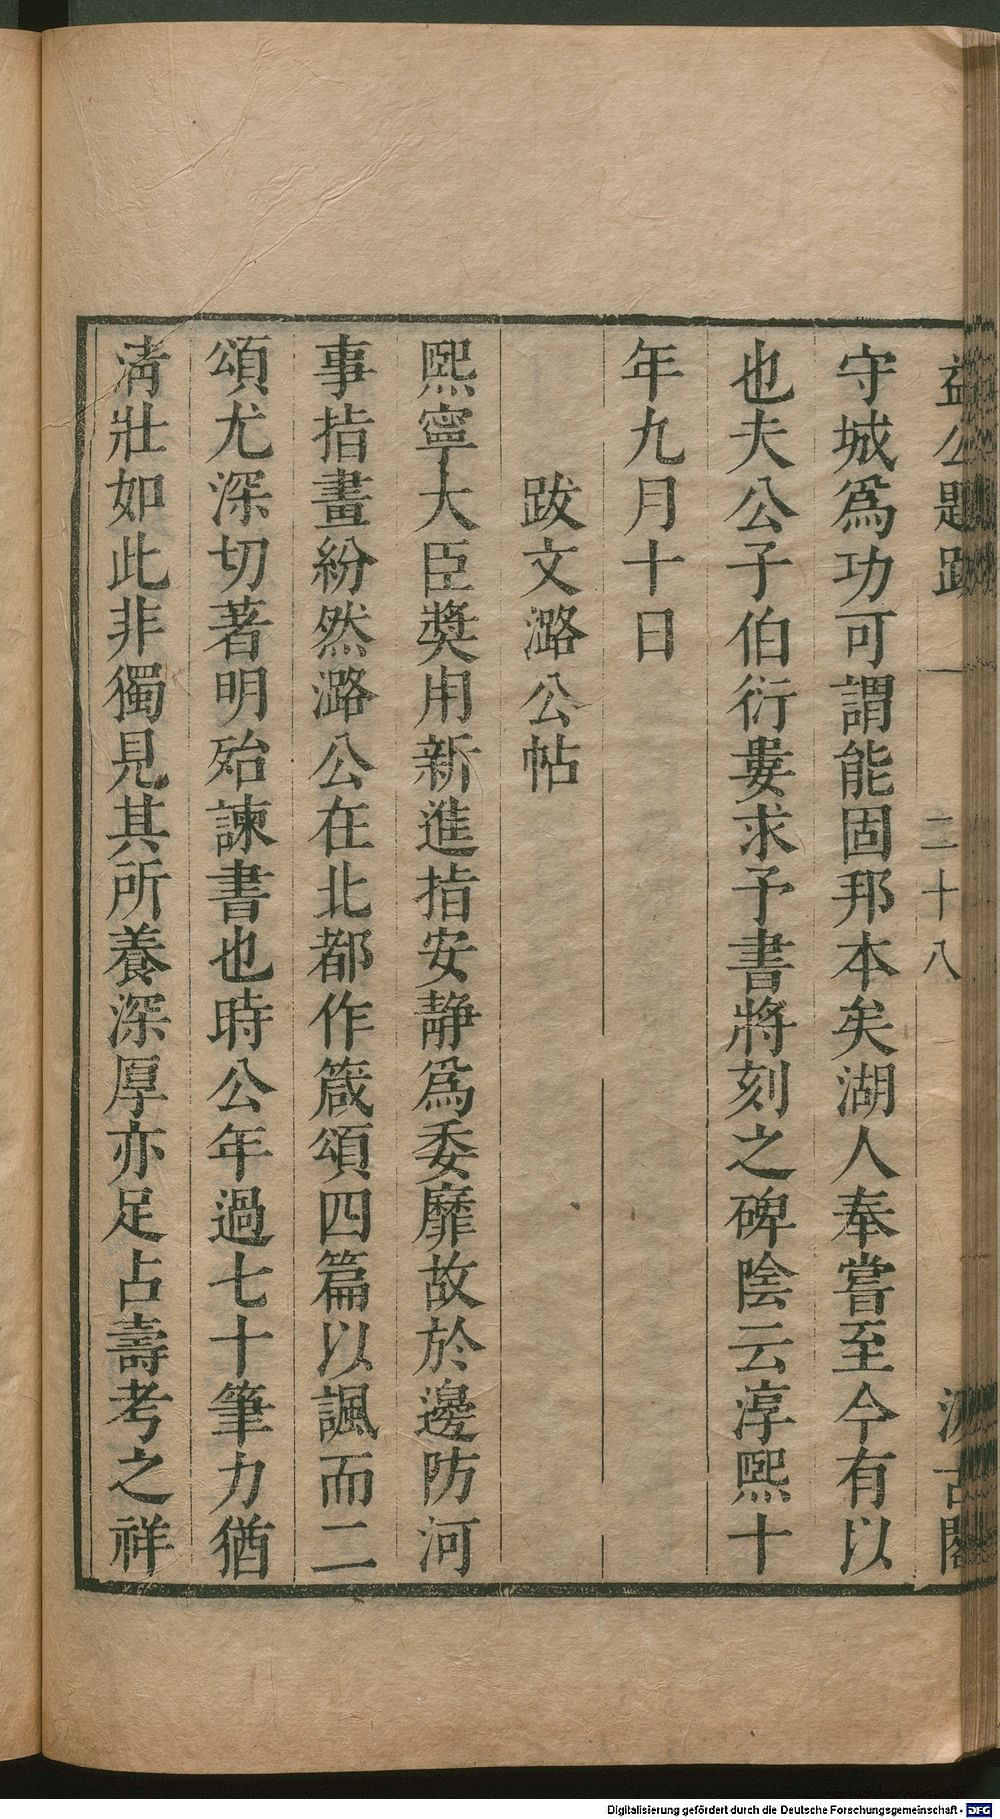 益公題跋 二十八 汲古閣
守城爲功可謂能固邦本矣湖人奉嘗至今有以
也夫公子伯衍婁求予書將刻之碑陰云淳熙十
年九月十日
跋文潞公帖
熙寧大臣奬用新進指安靜爲委靡故於邊防河
事指畫紛然潞公在北都作箴頌四篇以諷而二
頌尤深切著明殆諫書也時公年過七十筆力猶
淸壯如此非獨見其所養深厚亦足占壽考之祥
Digitalisierung gefördert durch die Deutsche Forschungsgemeinschaft - DFG